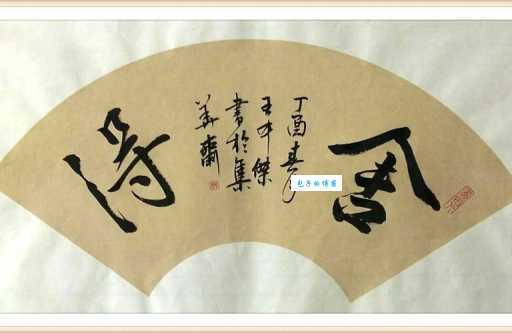 舍
丁酉春月
王傑
書於集
美齋
得
包子的博客